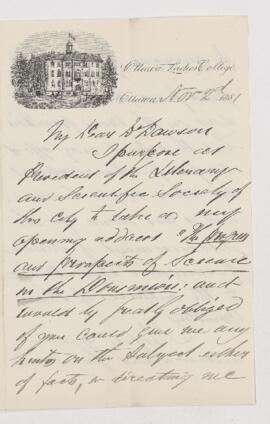 Ottawa Ladies' College,
Ottawa, Nov 2nd 1881
My Dear Dr Dawson
I purpose as
President of the Literary
and Scientific Society of
this city to take as my
opening address "The progress
and prospects of Science
in the Dominion: and
would be greatly obliged
if you could give me any
hints on the subject either
of facts, or directing me